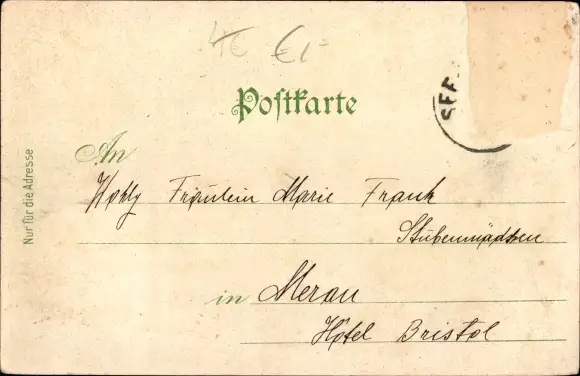 4€ €1-
Postkarte
SEE
An
Nur für die Adresse
Wohlg Fräulein Marie Frank
Stubenmädchen
in Meran
Hôtel Bristol